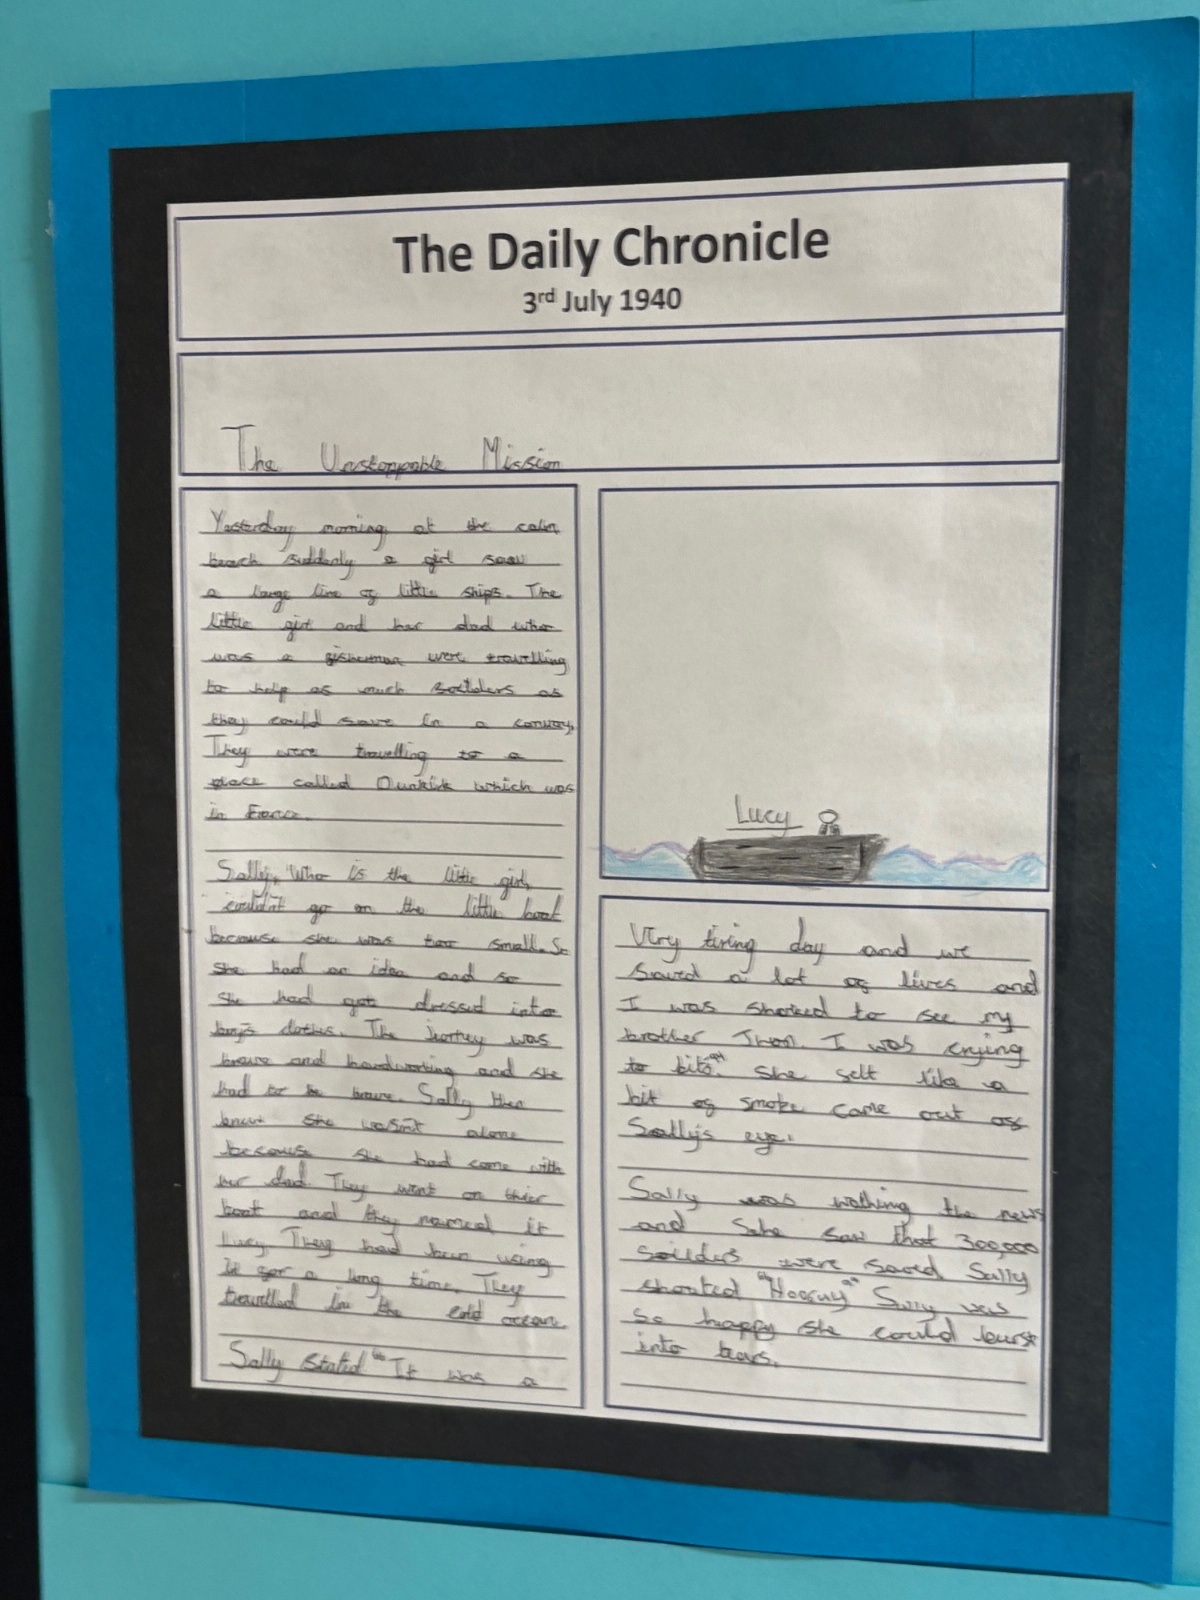 The Daily Chronicle
3rd July 1940
The Unstoppable Mission
Yesterday morning at the calm
beach suddenly a girl saw
a large line of little ships. The
little girl and her dad who
was a fisherman were travelling
to help as much as
they could save in a convoy.
They were travelling to a
place called Dunkirk which was
in
Sally, Who is the little girl,
couldn't go on the little boat
because she was too small. So
she had an idea and so
she had got dressed into
boy's The was
brave and hardworking and she
had to be brave. Sally then
knew she wasn't alone
because she had come with
her dad. They went on thier
boat and they named it
Lucy They had been using
it for a long time. They
travelled in the cold ocean.
Sally stated "It was a
Lucy
Very tiring day and we
Saved a lot of lives and
I was to see my
brother I was crying
to bits". She felt like a
bit of smoke came out off
Sally's eye.
Sally was the news
and She saw that 300,000
were saved Sally
shouted "Hooray" Sally was
so happy she could burst
into tears.